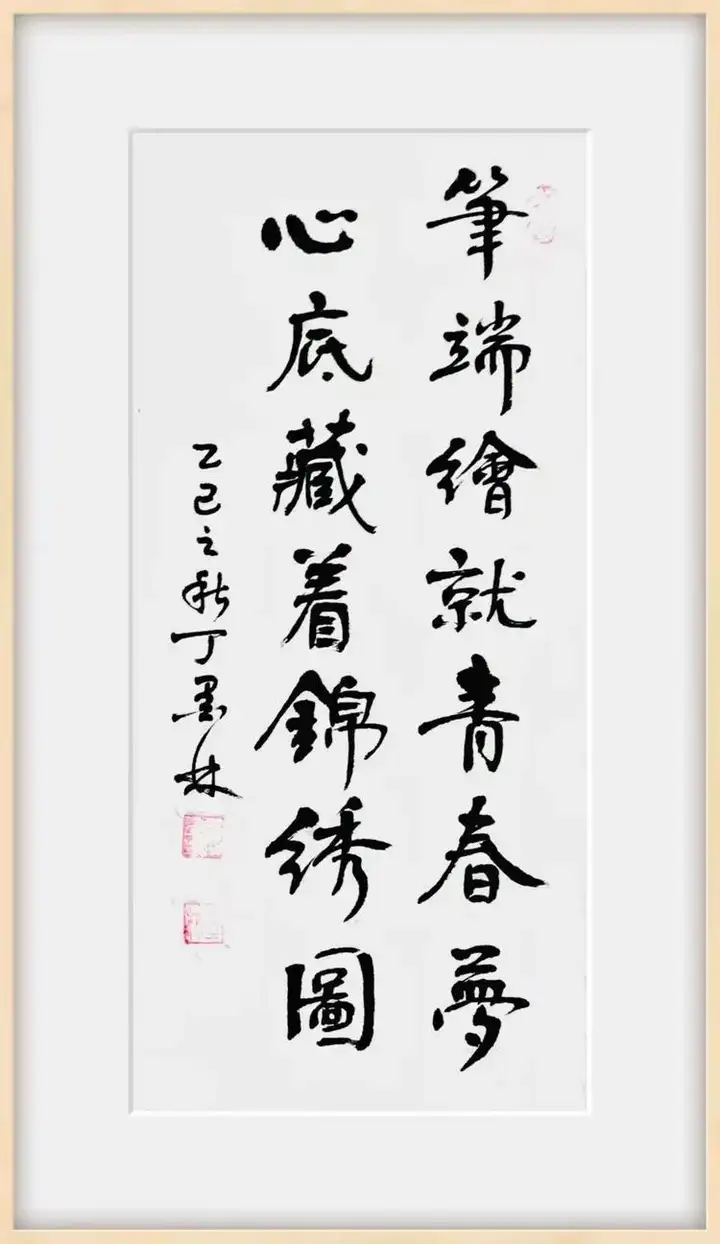 筆端繪就青春夢
心底藏着錦绣圖
乙巳之秋丁墨林